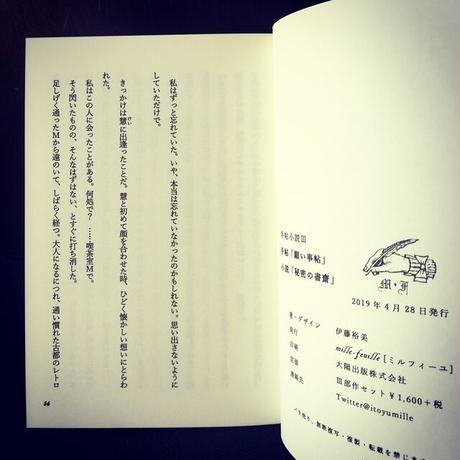 私はずっと忘れていた。いや、本当は忘れていなかったのかもしれない。思い出さないように
していただけで。
きっかけは慧に出逢ったことだ。慧と初めて顔を合わせた時、ひどく懐かしい想いにとらわ
けい
れた。
私はこの人に会ったことがある。何処で？ ……喫茶室Mで。
そう閃いたものの、そんなはずはない、とすぐに打ち消した。
足しげく通ったMから遠のいて、しばらく経つ。大人になるにつれ、通い慣れた古都のレトロ
54
手帖小説Ⅲ
手帖「願い事帖」
小説「秘密の書齋」
M・F
2019年4月28日発行
著・デザイン 伊藤裕美
発行 mille-feuille[ミルフィーユ]
印刷 大陽出版株式会社
定価 Ⅲ部作セット¥1,600+税
連絡先 Twitter@itoyumille
バラ売り、無断複写・複製・転載を禁じま